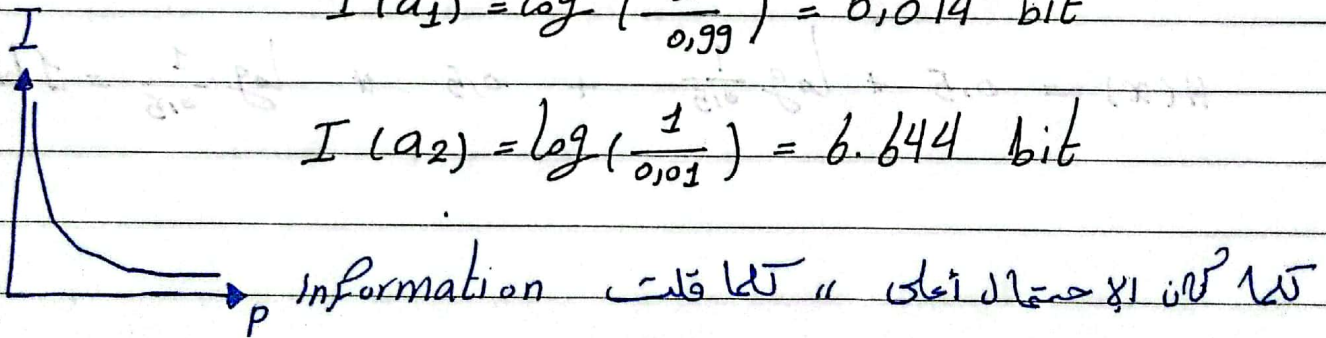 I (a1) = log ( / 0,99 ) = 0,014 bit
I
I (a2) = log( 1 / 0,01 ) = 6.644 bit
كلما كان الإحتمال أعلى ،، كلما قلت Information
P